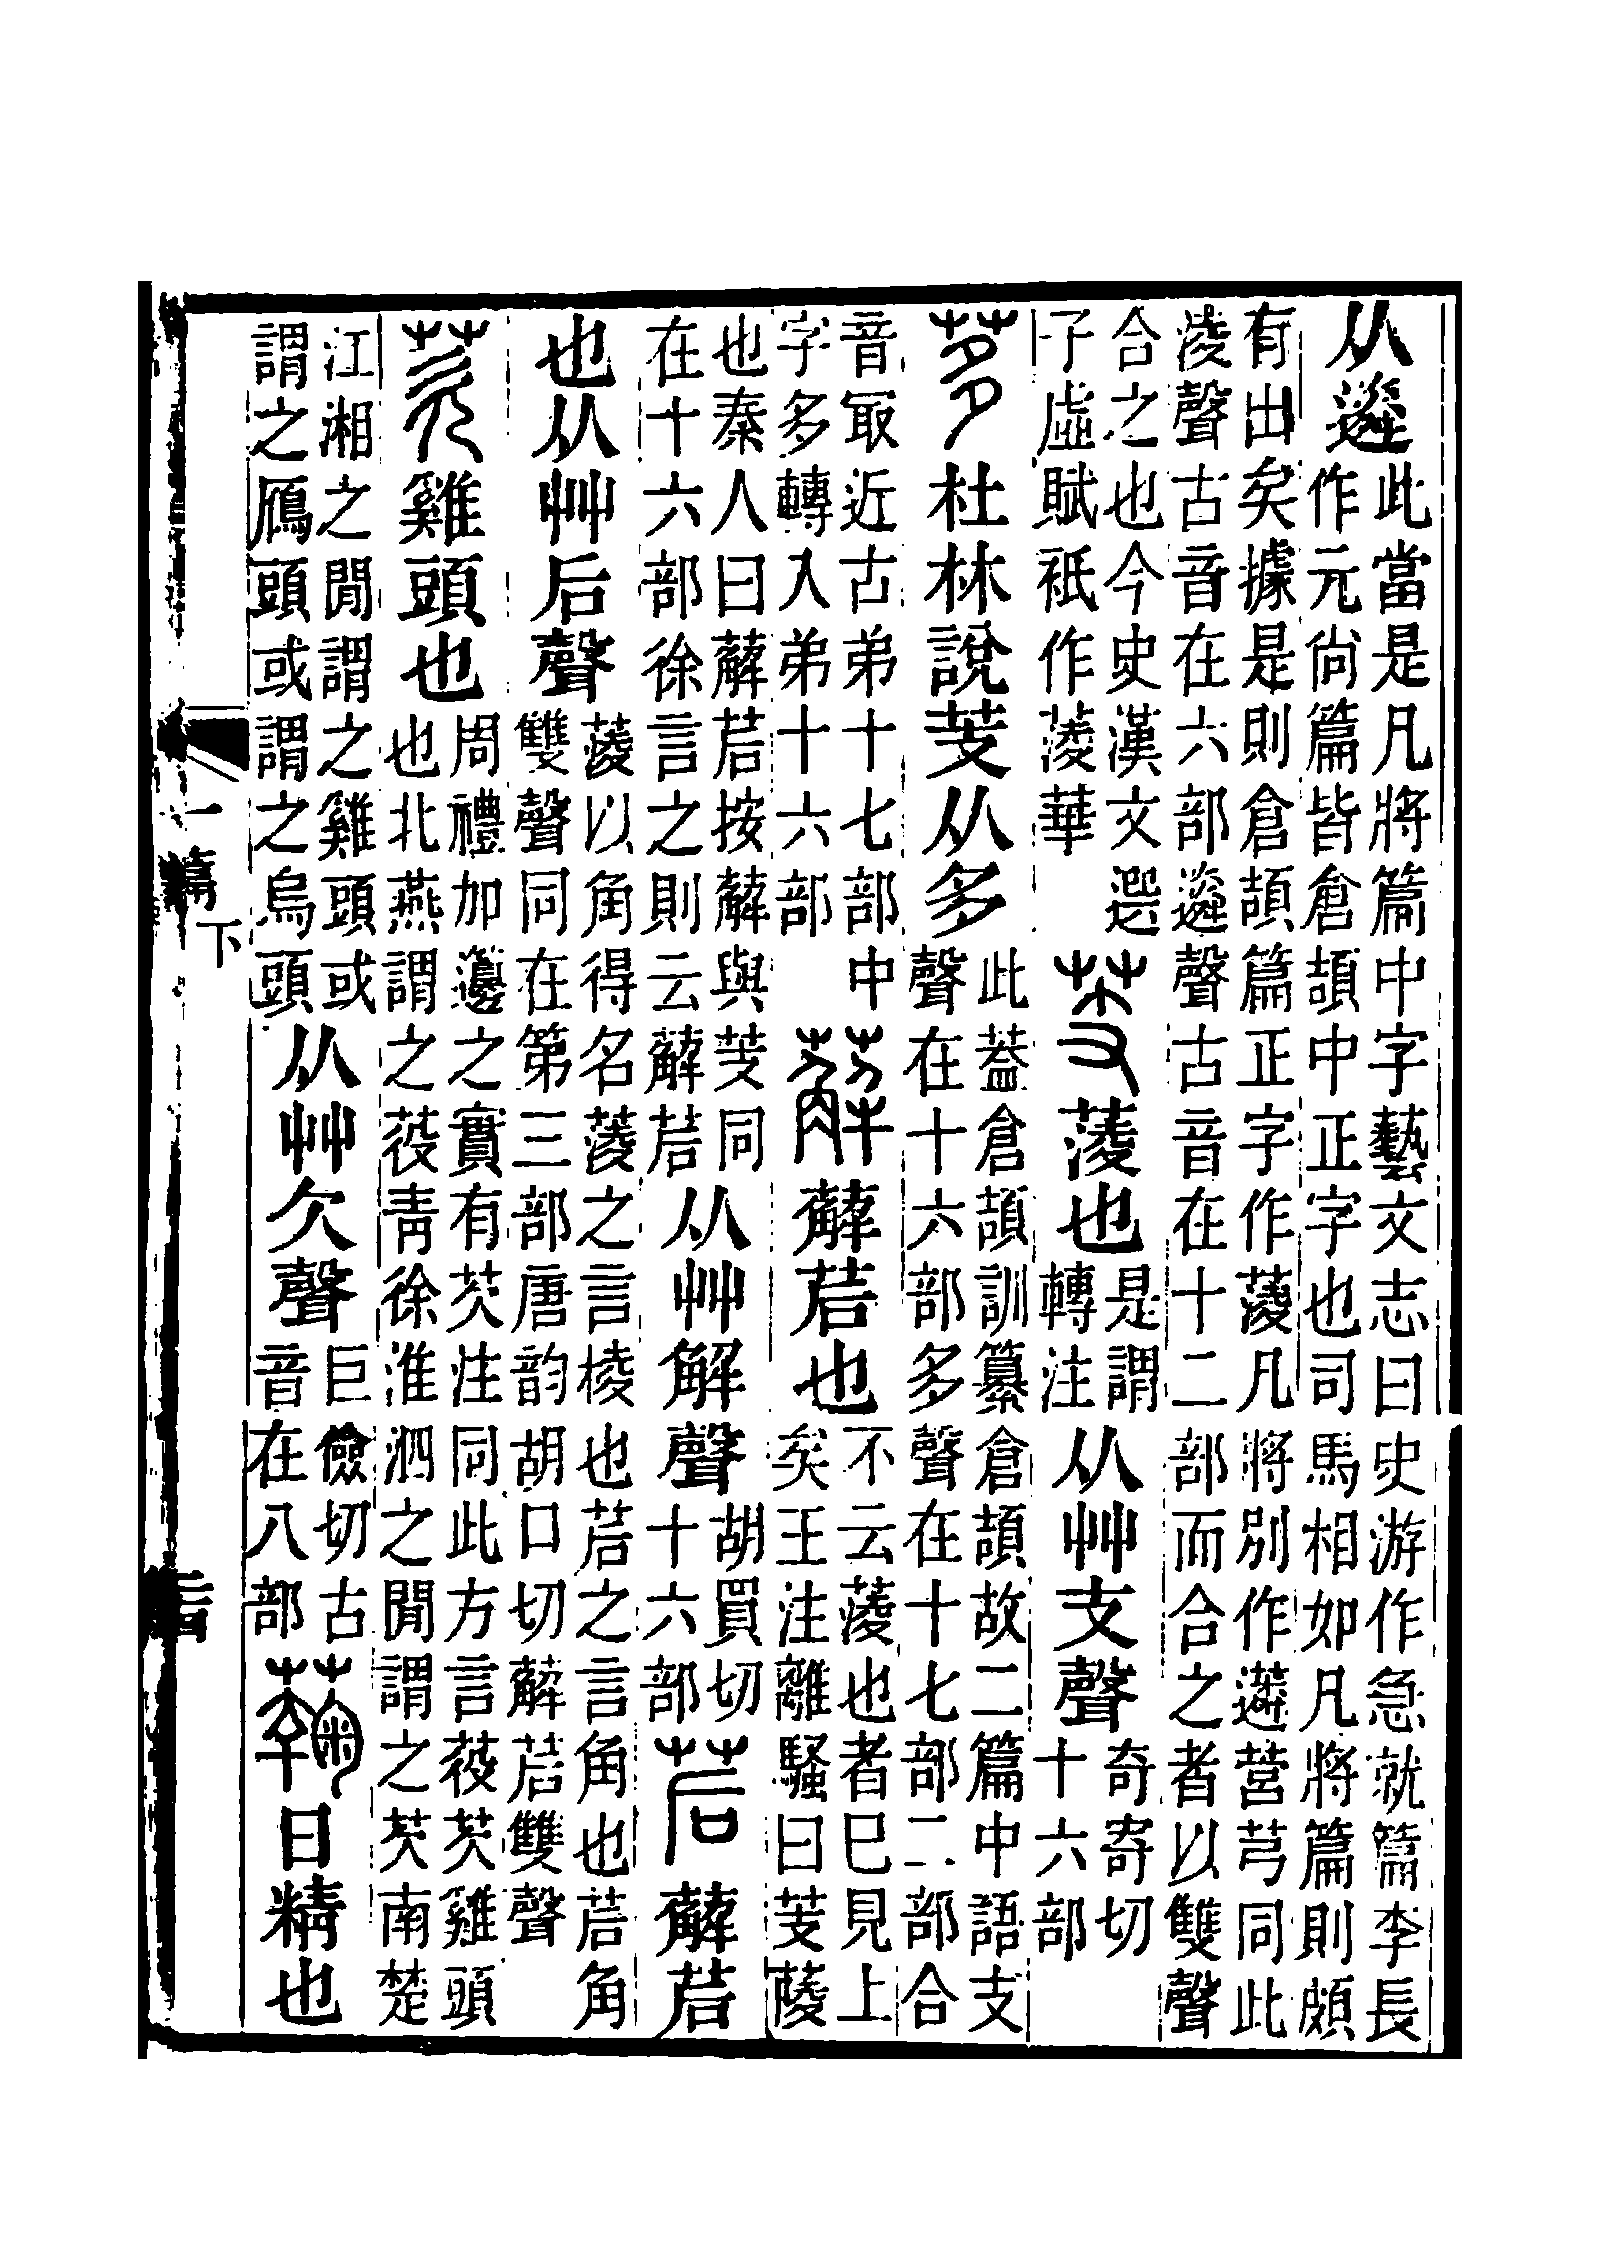 从遴此當是凡將篇中字藝文志曰史游作急就篇李長作元尙篇皆倉頡中正字也司馬相如凡將篇則頗
有出矣據是則倉頡篇正字作蔆凡將別作遴營芎同此淩聲古音在六部遴聲古音在十二部而合之者以雙聲
合之也今史漢文選子虛賦祇作蔆華芰蔆也是謂轉注从艸支聲奇寄切十六部
茤杜林說芰从多此蓋倉頡訓纂倉頡故二篇中語支聲在十六部多聲在十七部二部合
音冣近古弟十七部中字多轉入弟十六部薢薢茩也不云蔆也者巳見上矣王注離騷曰芰蔆
也秦人曰薢茩按薢與芰同在十六部徐言之則云薢茩从艸解聲胡買切十六部茩薢茩
也从艸后聲蔆以角得名蔆之言棱也茩之言角也茩角雙聲同在第三部唐韵胡口切薢茩雙聲
芡雞頭也周禮加籩之實有芡注同此方言䓈芡雞頭也北燕謂之䓈靑徐淮泗之閒謂之芡南楚
江湘之閒謂之雞頭或謂之鴈頭或謂之烏頭从艸欠聲巨儉切古音在八部蘜日精也
一篇下